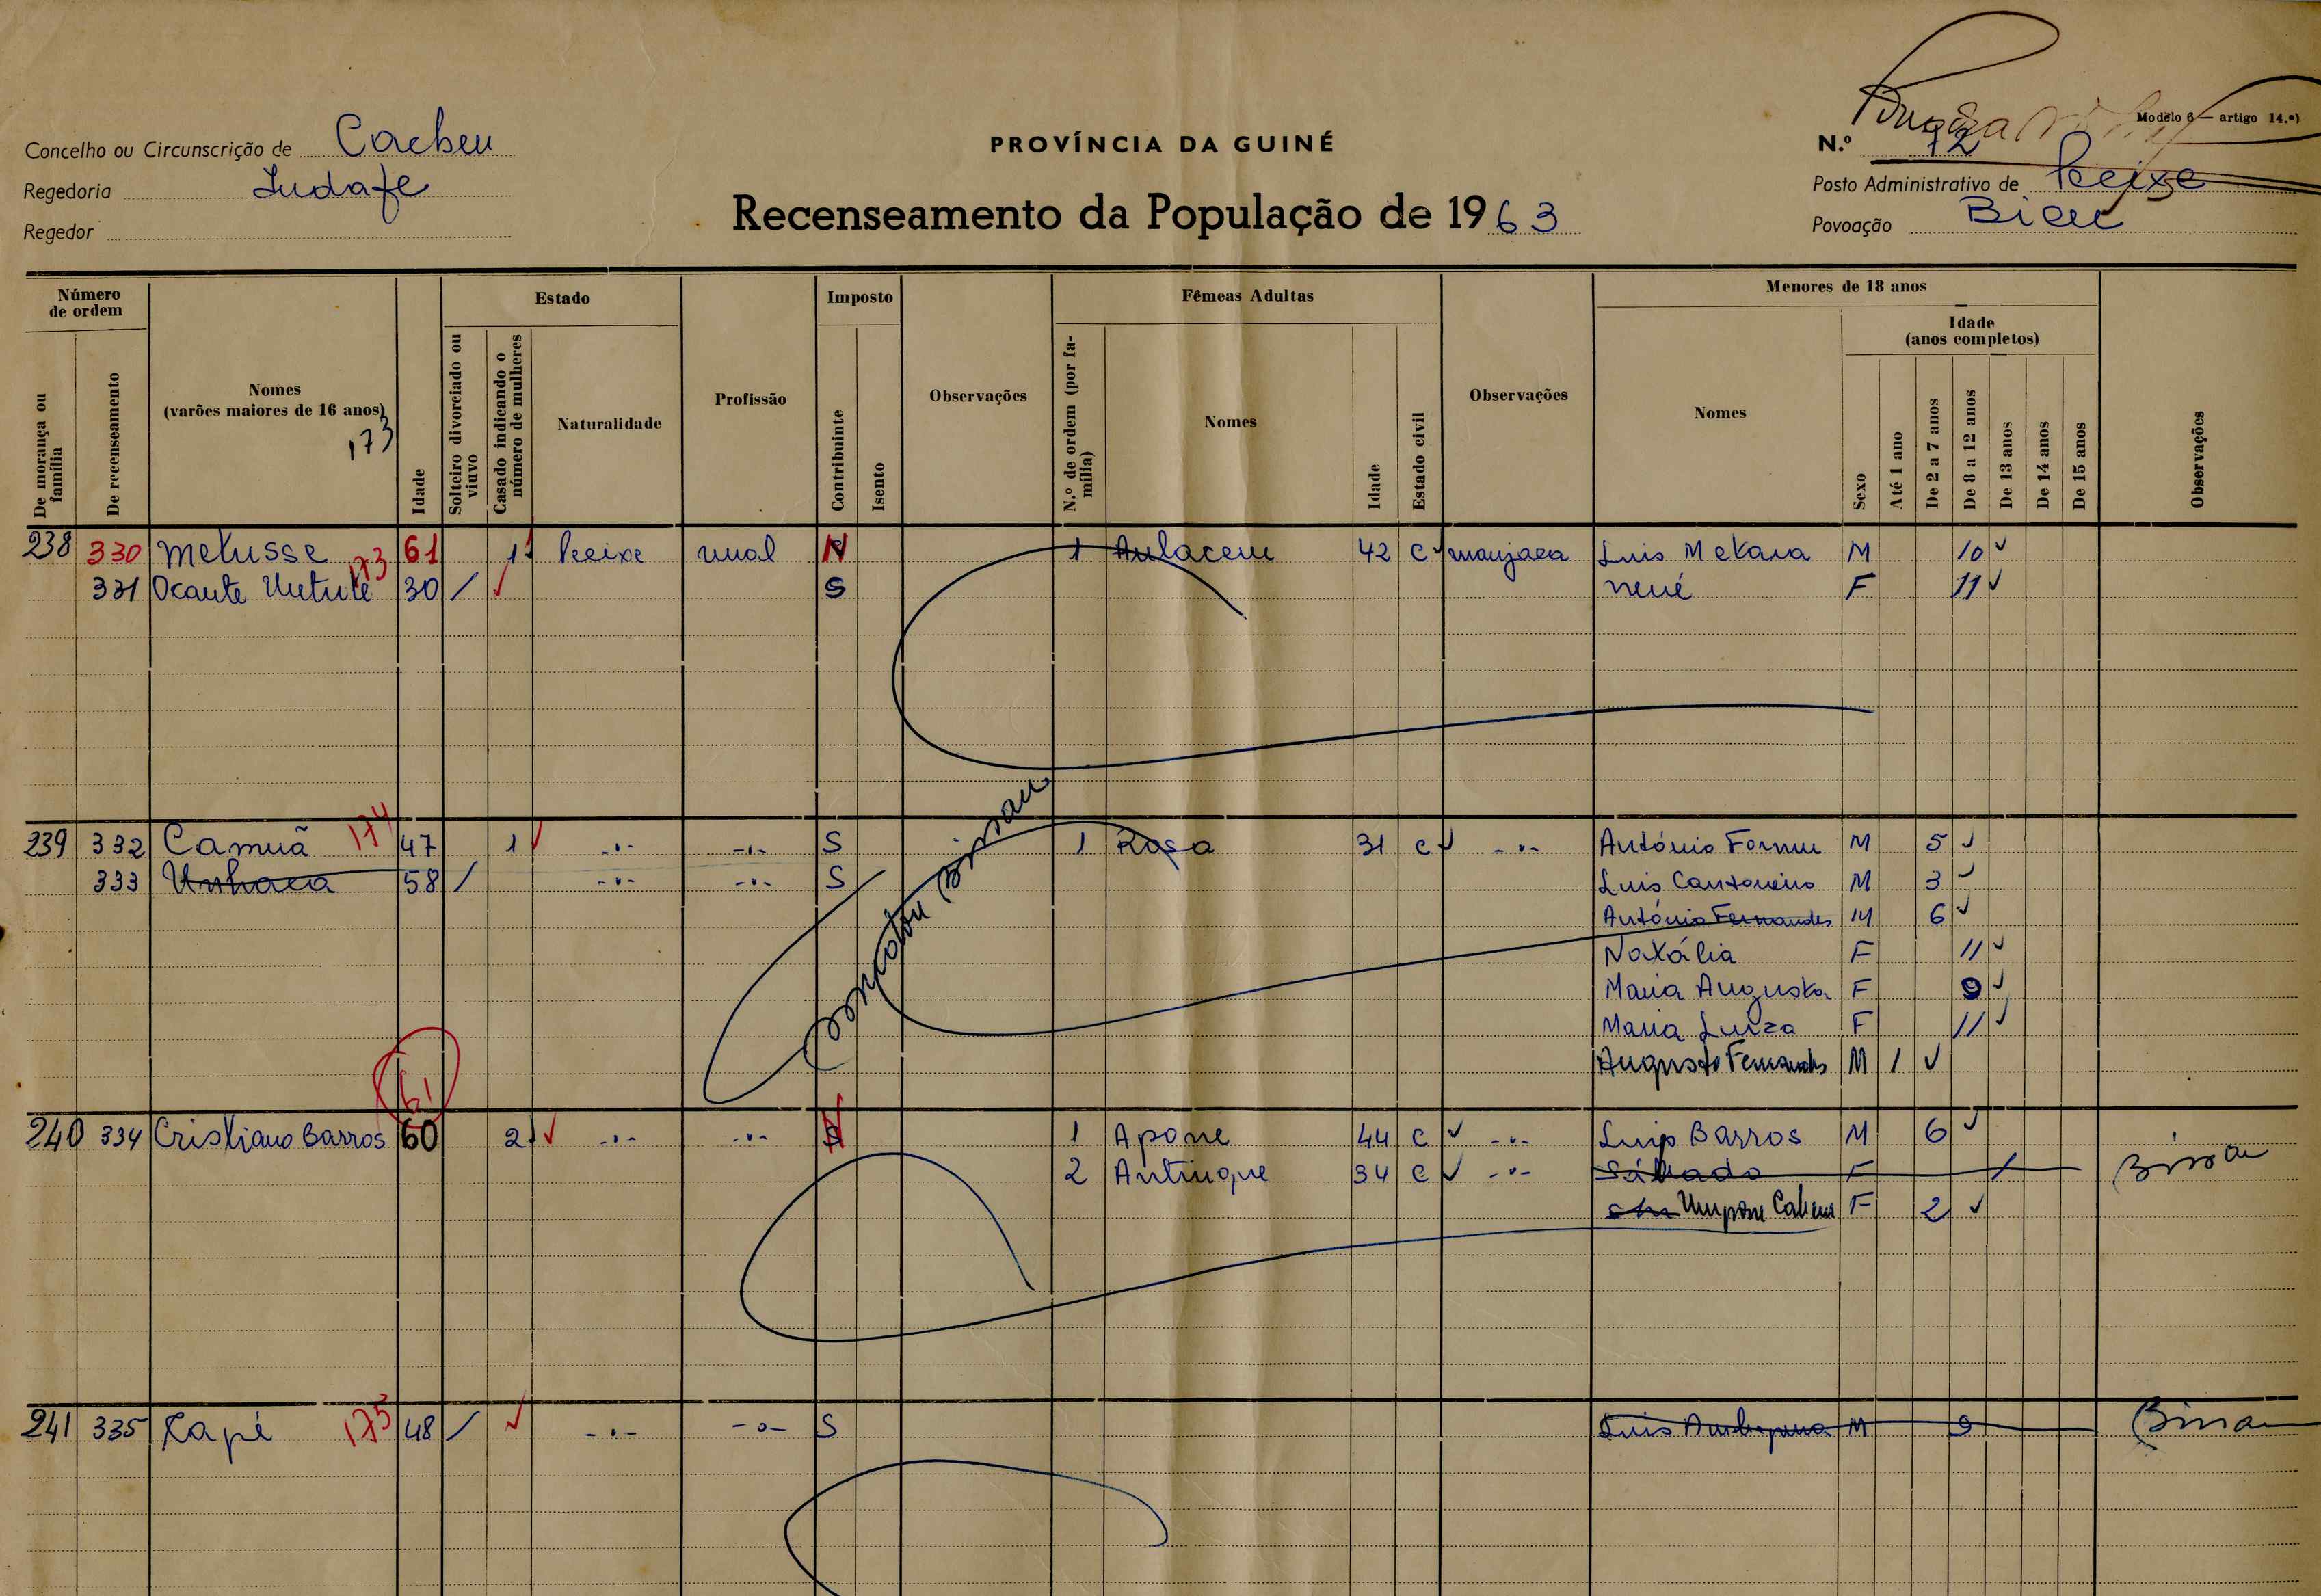 Modêlo 6 — artigo 14.º)
Concelho ou Circunscrição de Cacheu
PROVÍNCIA DA GUINÉ
N.º 72
Regedoria
Posto Administrativo de
Regedor
Recenseamento da População de 1963
Povoação
Número de ordem
Estado
Imposto
Fêmeas Adultas
Menores de 18 anos
De morança ou família
De recenseamento
Nomes
(varões maiores de 16 anos)
173
Idade
Solteiro divorciado ou viuvo
Casado indicando o número de mulheres
Naturalidade
Profissão
Contribuinte
Isento
Observações
N.º de ordem (por família)
Nomes
Idade
Estado civil
Observações
Nomes
Sexo
Idade
(anos completos)
Até 1 ano
De 2 a 7 anos
De 8 a 12 anos
De 13 anos
De 14 anos
De 15 anos
Observações
238 330 Melusse 173 61 1 N 1 42 C Luis M 10
331 Ocante 30 / S nené F 11
239 332 Camuã 174 47 1 -"- -"- S 1 Rosa 31 C -"- António M 5
333 Unhaca 58 / -"- -"- S Luis Cantoneiro M 3
António Fernandes M 6
Natália F 11
Maria Augusta F 9
Maria Luiza F 11
Augusto Fernandes M 1
61
240 334 Cristiano Barros 60 2 -"- -"- 1 Apone 44 C -"- Luis Barros M 6
2 Antinque 34 C -"- Sábado F Bissau
F 2
241 335 175 48 / -"- -"- S Luis M 9 Bissau